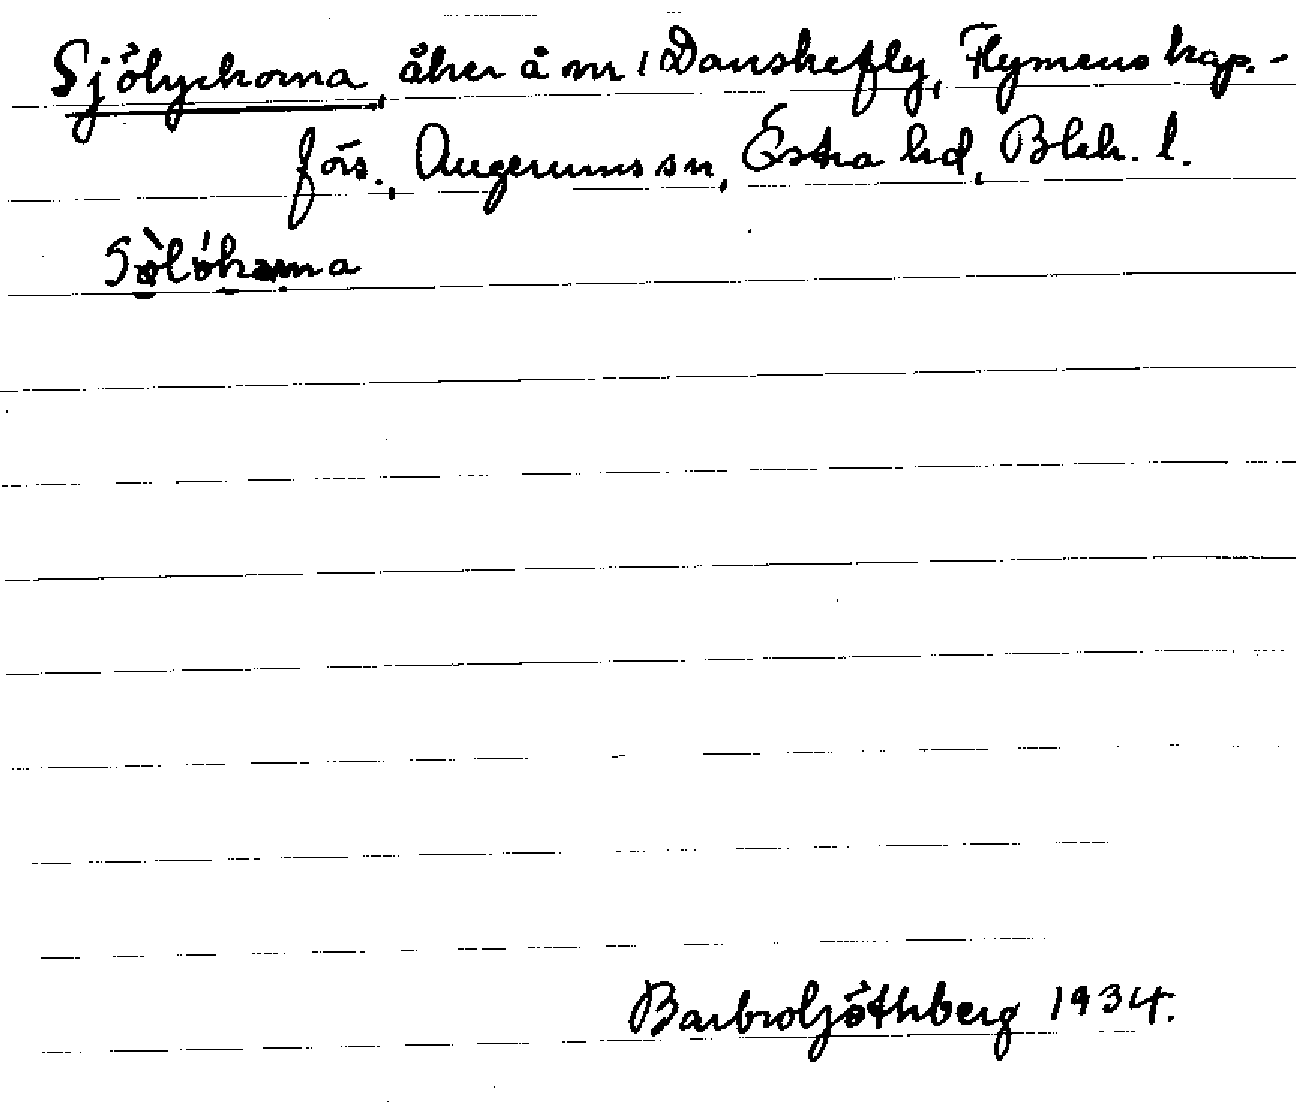 Sjölyckorna, åker å nr 1 Danskefly, Flymens kap.-
förs., Augerums sn, Östra hd, Blek. l.
Barbro Göthberg 1934.